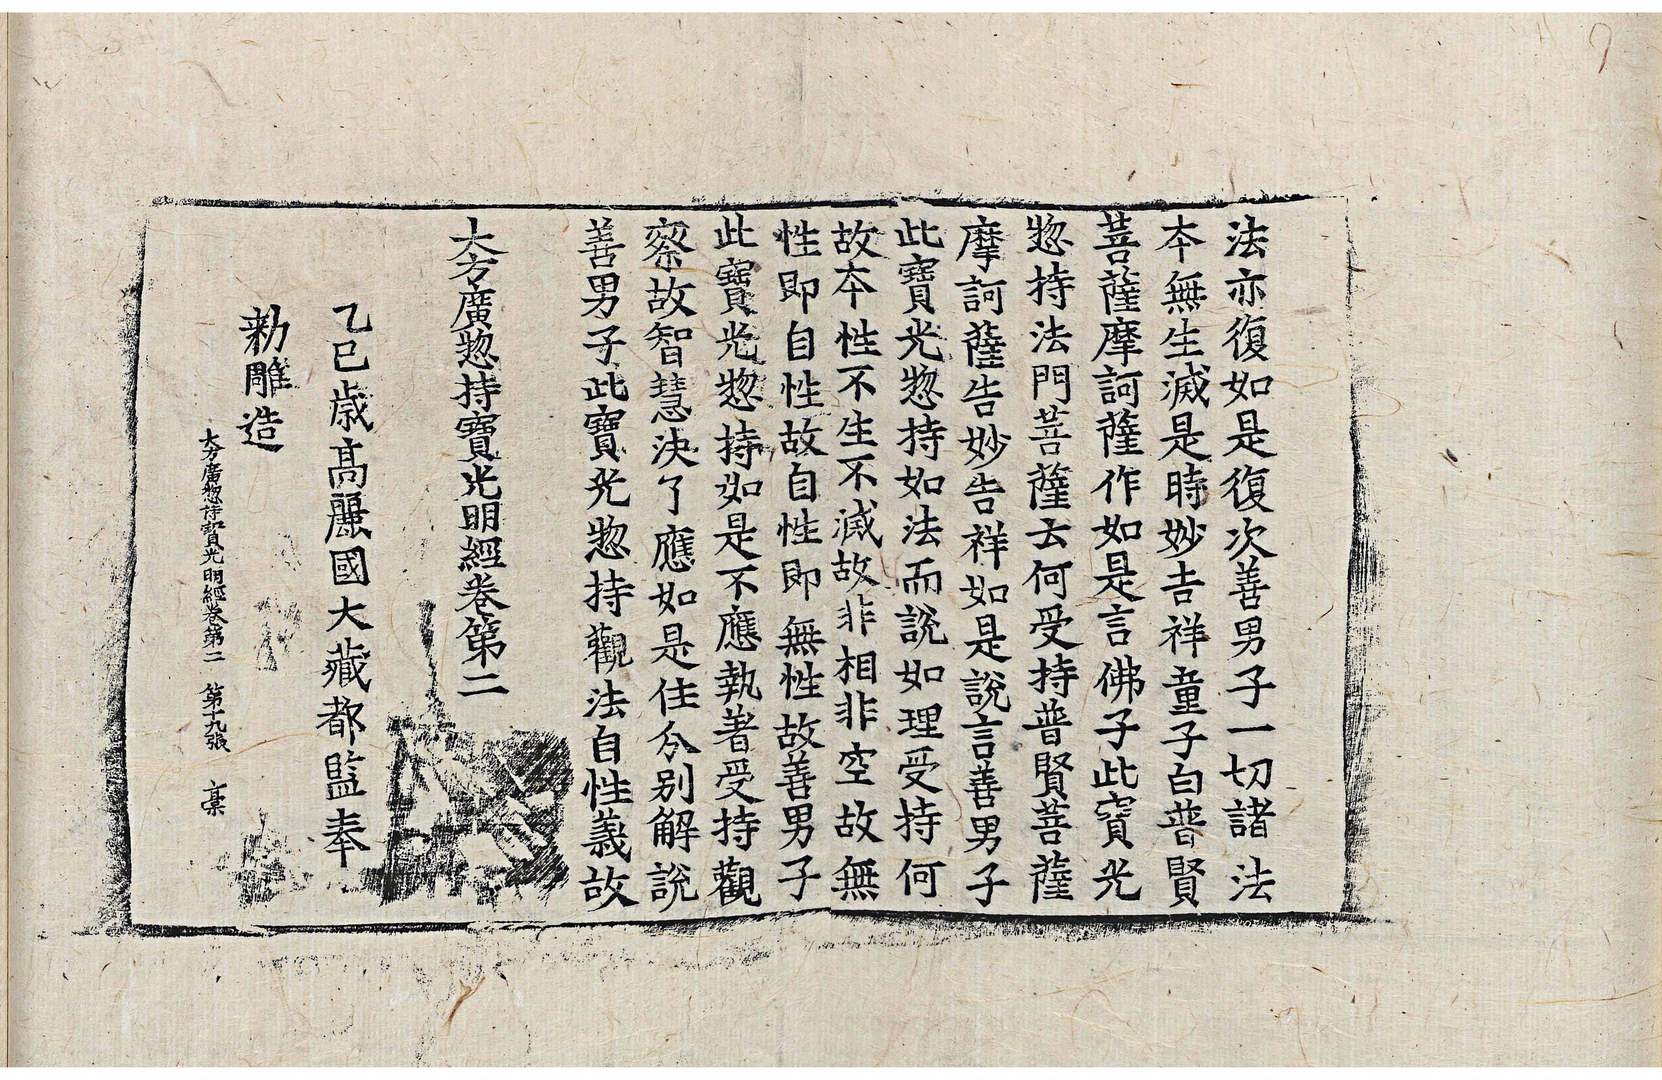 法亦復如是復次善男子一切諸法
本無生滅是時妙吉祥童子白普賢
菩薩摩訶薩作如是言佛子此寶光
惣持法門菩薩云何受持普賢菩薩
摩訶薩告妙吉祥如是說言善男子
此寶光惣持如法而說如理受持何
故本性不生不滅故非相非空故無
性即自性故自性即無性故善男子
此寶光惣持如是不應執著受持觀
察故智慧決了應如是住分別解說
善男子此寶光惣持觀法自性義故
大方廣惣持寶光明經卷第二
乙巳歲高麗國大藏都監奉
勑雕造
大方廣惣持寶光明經卷第二 第十九張